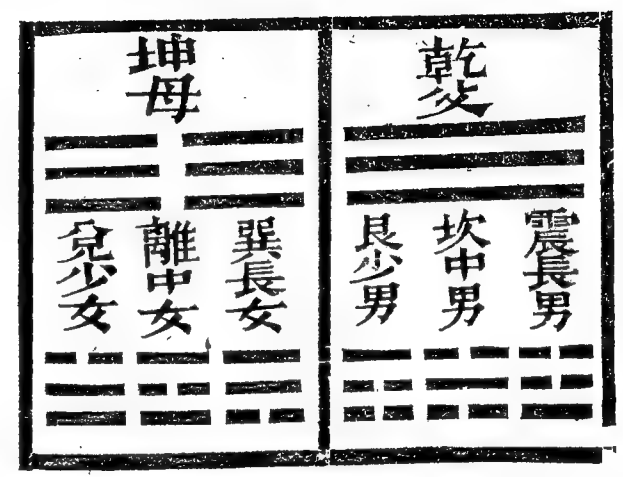 乾父
震長男
坎中男
艮少男
坤母
巽長女
離中女
兌少女